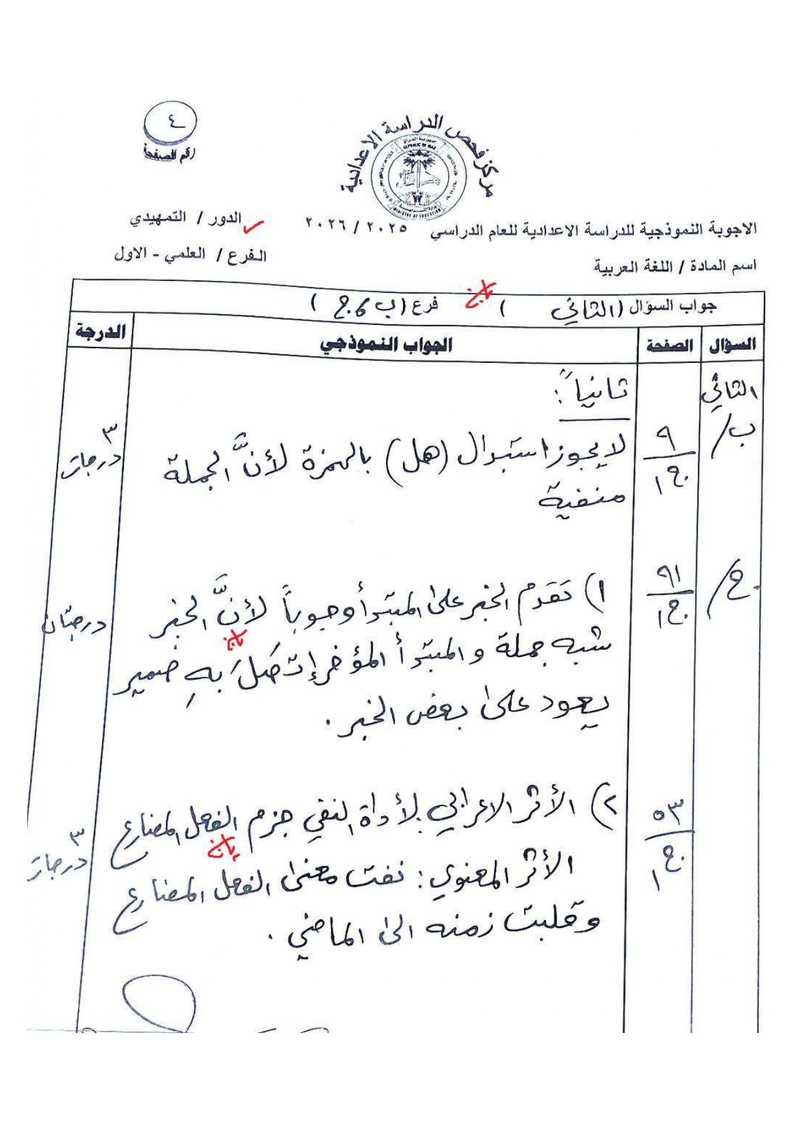 ٤
رقم الصفحة
مركز فحص الدراسة الاعدادية
جمهورية العراق
REPUBLIC OF IRAQ
MINISTRY OF EDUCATION
الاجوبة النموذجية للدراسة الاعدادية للعام الدراسي ٢٠٢٥ / ٢٠٢٦ الدور / التمهيدي
اسم المادة / اللغة العربية الفرع / العلمي - الاول
جواب السؤال (الثاني) فرع (ب، ج)
السؤال الصفحة الجواب النموذجي الدرجة
الثاني ثانياً:
ب/ ٩/ج١ لا يجوز استبدال (هل) بالهمزة لأنَّ الجملة ٣ درجات
منفية
ج/ ٩١/ج١ ١) تقدم الخبر على المبتدأ وجوباً لأنَّ الخبر درجتان
شبه جملة و المبتدأ المؤخر إتصَلَ بهِ ضمير
يعود على بعض الخبر.
٥٣/ج١ ٢) الأثر الاعرابي لأداة النفي جزم الفعل المضارع ٣ درجات
الأثر المعنوي: نفت معنى الفعل المضارع
وقلبت زمنه الى الماضي.